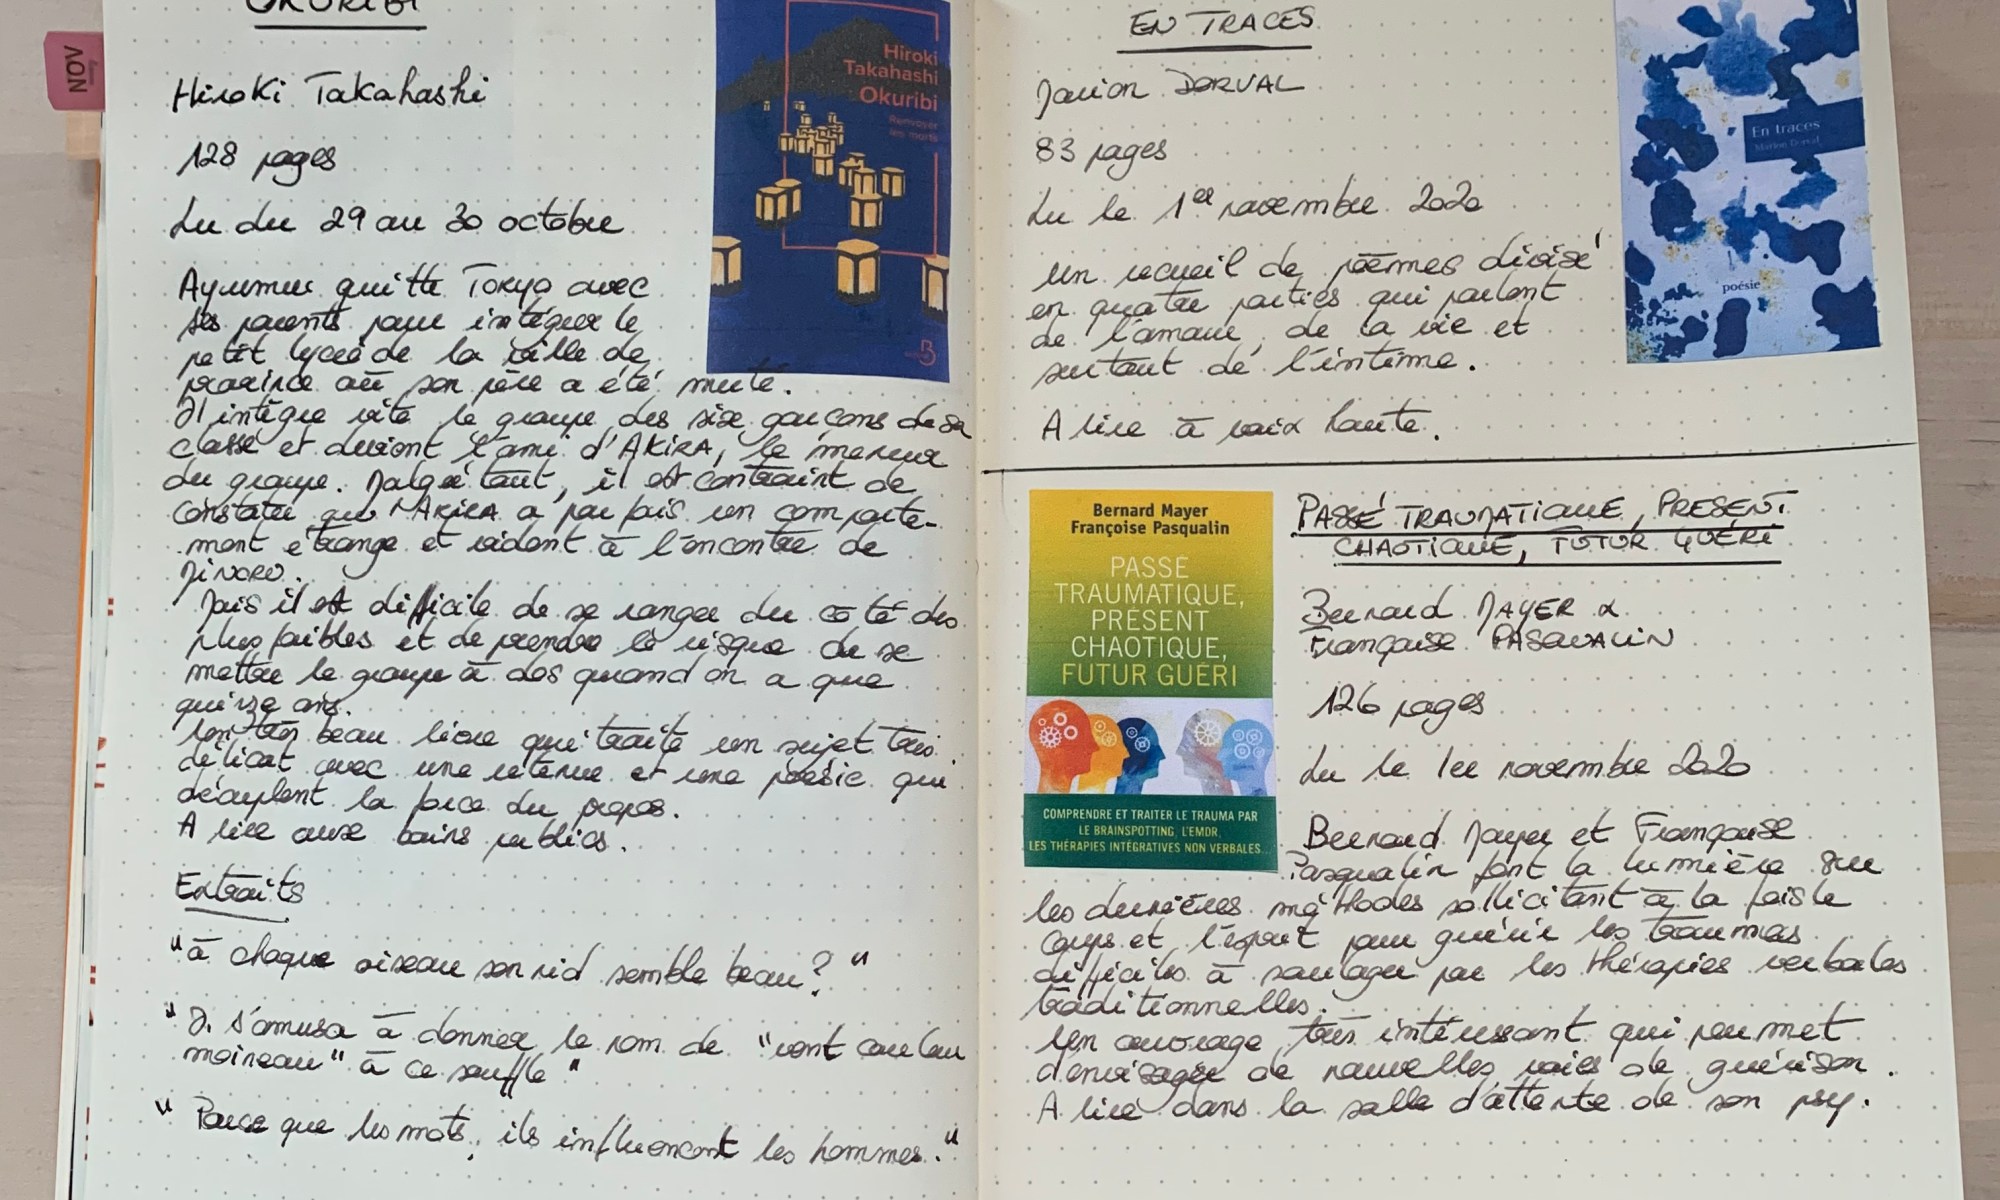 NOV
OKURIBI
Hiroki Takahashi
128 pages
Lu du 29 au 30 octobre
Ayumu quitte Tokyo avec
ses parents pour intégrer le
petit lycée de la ville de
province où son père a été muté.
Il intègre vite le groupe des six garçons de sa
classe et devient l'ami d'AKIRA, le meneur
du groupe. Malgré tout, il est contraint de
constater qu'AKIRA a parfois un comporte-
ment étrange et violent à l'encontre de
MINORU.
Mais il est difficile de se ranger du côté des
plus faibles et de prendre le risque de se
mettre le groupe à dos quand on a que
quinze ans.
Un très beau livre qui traite un sujet très
délicat avec une retenue et une poésie qui
décuplent la force du propos.
A lire aux bains publics.
Extraits
"à chaque oiseau son nid semble beau?"
"Il s'amusa à donner le nom de "vent couleur
moineau" à ce souffle"
"Parce que les mots, ils influencent les hommes."
Hiroki
Takahashi
Okuribi
Renvoyer
les morts
B
EN TRACES
Marion DORVAL
83 pages
Lu le 1er novembre 2020
Un recueil de poèmes divisé
en quatre parties qui parlent
de l'amour, de la vie et
surtout de l'intime.
A lire à voix haute.
En traces
Marion Dorval
poésie
Bernard Mayer
Françoise Pasqualin
PASSÉ
TRAUMATIQUE,
PRÉSENT
CHAOTIQUE,
FUTUR GUÉRI
COMPRENDRE ET TRAITER LE TRAUMA PAR
LE BRAINSPOTTING, L'EMDR,
LES THÉRAPIES INTÉGRATIVES NON VERBALES...
PASSÉ TRAUMATIQUE, PRESENT
CHAOTIQUE, FUTUR GUÉRI
Bernard MAYER &
Françoise PASQUALIN
126 pages
Lu le 1er novembre 2020
Bernard Mayer et Françoise
Pasqualin font la lumière sur
les dernières méthodes sollicitant à la fois le
corps et l'esprit pour guérir les traumas
difficiles à soulager par les thérapies verbales
traditionnelles.
Un ouvrage très intéressant qui permet
d'envisager de nouvelles voies de guérison.
A lire dans la salle d'attente de son psy.